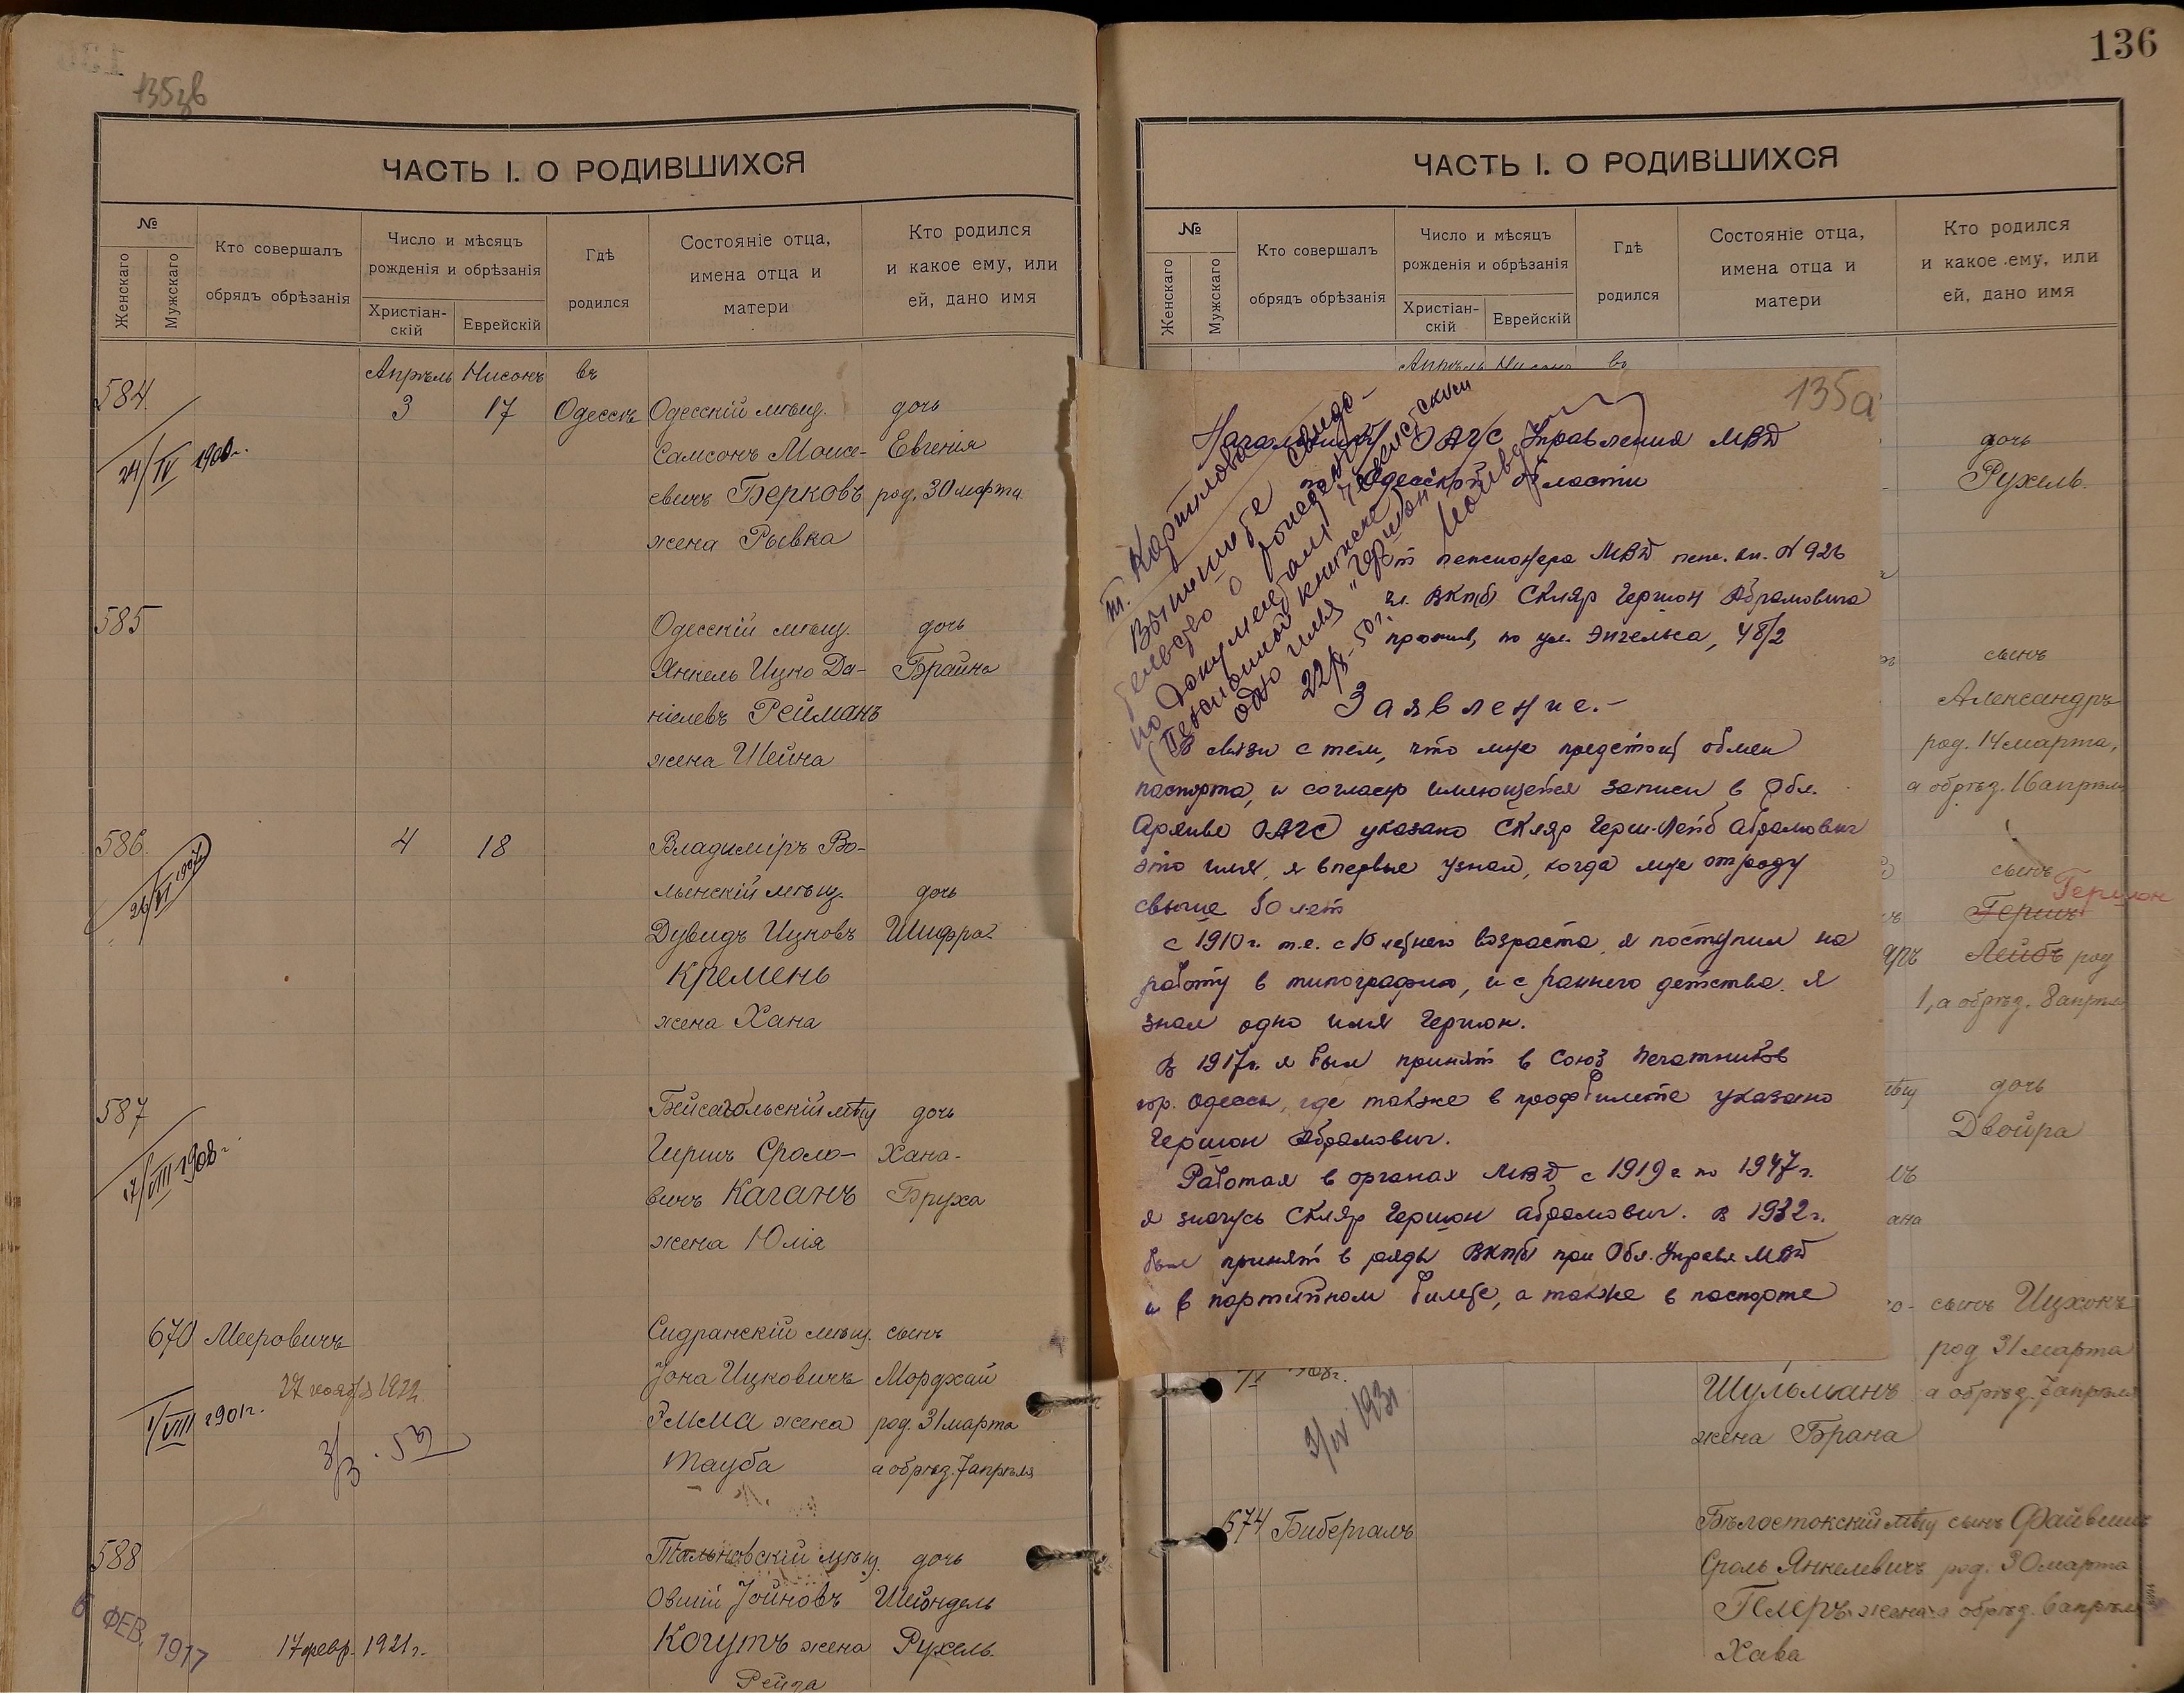 135зв
ЧАСТЬ I. О РОДИВШИХСЯ
№
Женскаго
Мужскаго
Кто совершалъ
обрядъ обрѣзанія
Число и мѣсяцъ
рожденія и обрѣзанія
Христіан-
скій
Еврейскій
Гдѣ
родился
Состояніе отца,
имена отца и
матери
Кто родился
и какое ему, или
ей, дано имя
Апрѣль Нисонъ въ
584 3 17 Одессѣ Одесскій мѣщ. дочь
24/IV 1900г. Самсонъ Моисе- Евгенія
евичъ Берковъ род. 30 марта
жена Рывка
585 Одесскій мѣщ. дочь
Янкель Ицко Да- Брайна
ніелевъ Рейманъ
жена Шейна
586 4 18 Владиміръ Во-
лынскій мѣщ. дочь
Дувидъ Ицковъ Шифра
Кремень
жена Хана
587 мѣщ дочь
17/VIII 1908г. Гершъ Сроло- Хана-
вичъ Каганъ Бруха
жена Юлія
670 Мееровичъ Сидранскій мѣщ. сынъ
27 1922. Іона Ицковичъ Мордхай
1/VIII 1901г. жена род. 31 марта
Тауба а обрѣз. 7 апрѣля
588 Тальновскій мѣщ. дочь
Овшій Іойновъ Шейндель
6 ФЕВ. 1917
17 февр. 1921г. Когутъ жена Рухель
Рейза
136
ЧАСТЬ I. О РОДИВШИХСЯ
№
Женскаго
Мужскаго
Кто совершалъ
обрядъ обрѣзанія
Число и мѣсяцъ
рожденія и обрѣзанія
Христіан-
скій
Еврейскій
Гдѣ
родился
Состояніе отца,
имена отца и
матери
Кто родился
и какое ему, или
ей, дано имя
Апрѣль Нисонъ въ
135а
Начальнику ЗАГС Управления МВД
по Одесской области
от пенсионера МВД пенс. кн. № 926
чл. ВКП(б) Скляр Гершон Абрамовича
прожив. по ул. Энгельса, 48/2
т. Карпиловой
Выпишите свиде-
тельство о рождении
по документам чекистским
(пенсионной книжке
одно имя "Гершон"
22/X-50г.
Заявление.-
В связи с тем, что мне предстоит обмен
паспорта, и согласно имеющейся записи в Обл.
Архиве ЗАГС указано Скляр Герш-Лейб Абрамович
это имя, я впервые узнал, когда мне отроду
свыше 50 лет
с 1910г. т.е. с 10 летнего возраста, я поступил на
работу в типографию, и с раннего детства я
знал одно имя Гершон.
В 1917г. я был принят в Союз печатников
гор. Одессы, где также в профбилете указано
Гершон Абрамович.
Работая в органах МВД с 1919г по 1947г.
я значусь Скляр Гершон Абрамович. В 1932г.
был принят в ряды ВКП(б) при Обл. Управл МВД
и в партийном билете, а также в паспорте
дочь
Рухель.
сынъ
Александръ
род. 14 марта,
а обрѣз. 16 апрѣля
сынъ
Гершон
Гершъ
Лейбъ род
1, а обрѣз. 8 апрѣля
дочь
Двойра
сынъ Ицхокъ
род 31 марта
Шульманъ а обрѣзд. 7 апрѣля
жена Брана
1931
674 Бибергалъ Бѣлостокскій мѣщ сынъ Файвишъ
Сроль Янкелевичъ род. 30 марта
жена а обрѣз. 6 апрѣля
Хава